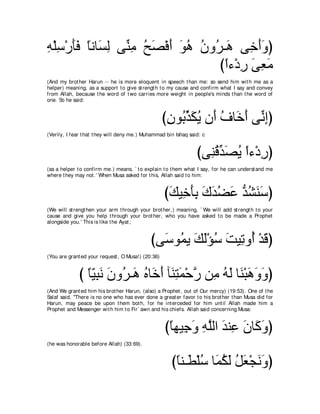 (وَأَخِى هَـرُونُ هُوَ أَفْصَحُ مِنِّى لِسَاناً فَأَرْسِلْهِ
مَعِىَ رِدْءاً)
(And my brother Harun -- he is more eloquent in speech than me: so send him with me as a
helper) meaning, as a support to give strength to my cause and confirm what I say and convey
from Allah, because the word of two carries more weight in people's minds than the word of
one. So he said:
(إِنِّى أَخَافُ أَن يُكَذِّبُونِ)
(Verily, I fear that they will deny me.) Muhammad bin Ishaq said: c
(رِدْءاً يُصَدِّقُنِى)
(as a helper to confirm me.) means, ` to explain to them what I say, for he can understand me
where they may not.' When Musa asked for this, Allah said to him:
(سَنَشُدُّ عَضُدَكَ بِأَخِيكَ)
(We will strengthen your arm through your brother,) meaning, ` We will add strength to your
cause and give you help through your brother, who you have asked to be made a Prophet
alongside you.' This is like the Ayat;
(قَدْ أُوتِيتَ سُؤْلَكَ يمُوسَى)
(You are granted your request, O Musa!) (20:36)
(وَوَهَبْنَا لَهُ مِن رَّحْمَتِنَآ أَخَاهُ هَـرُونَ نَبِيّاً )
(And We granted him his brother Harun, (also) a Prophet, out of Our mercy) (19:53). One of the
Salaf said, "There is no one who has ever done a greater favor to his brother than Musa did for
Harun, may peace be upon them both, for he interceded for him until Allah made him a
Prophet and Messenger with him to Fir` awn and his chiefs. Allah said concerning Musa:
(وَكَانَ عِندَ اللَّهِ وَجِيهاً)
(he was honorable before Allah) (33:69).
(وَنَجْعَلُ لَكُمَا سُلْطَـناً)